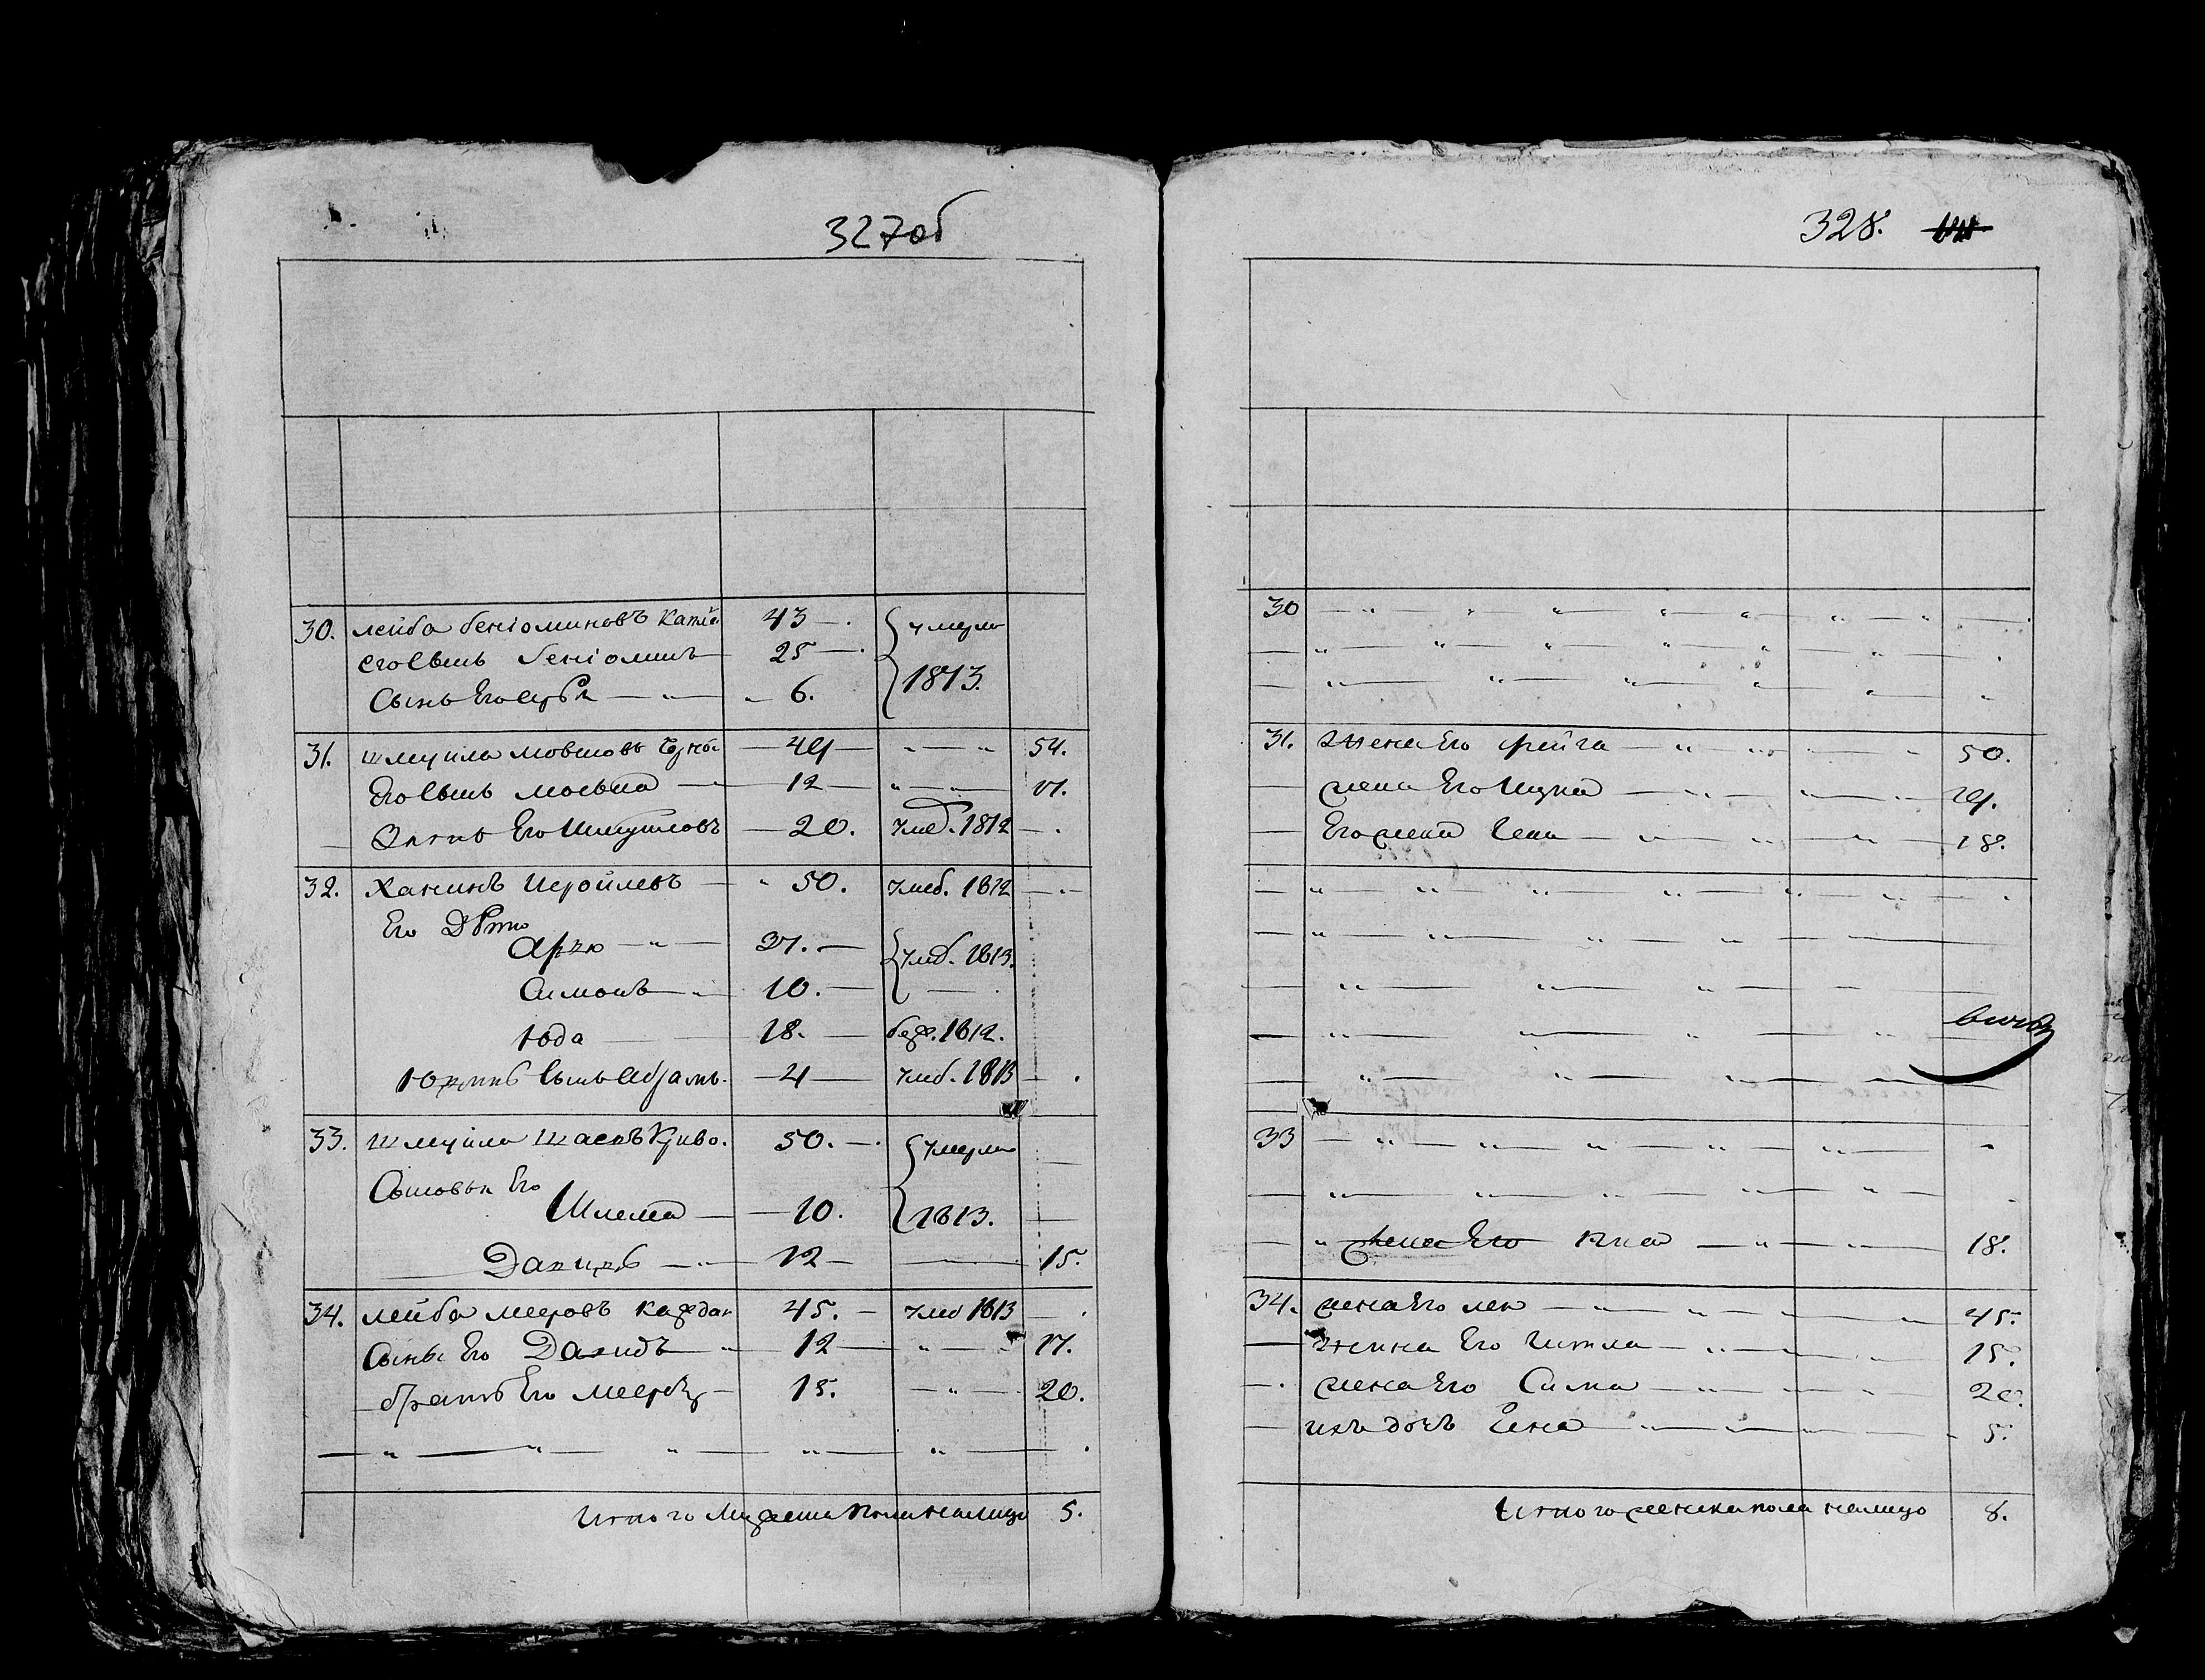 327об
30. лейба бениоминовъ
43
умерли
его сынъ бениоминъ
25
1813.
Сынъ Его
6.
31. шмуйла мовшовъ
49
54.
Его сынъ мовша
12
17.
Зять Его Шмуйловъ
20.
умер. 1812
32. Хаимъ Исройлевъ
50.
умер. 1812
Его Дѣти
27.
умер. 1813.
Симонъ
10.
Юда
18.
беж. 1812.
сынъ Абрамъ.
4
умер. 1813
33. шмуйла
50.
умерли
Сыновья Его
Шлема
10.
1813.
12
15.
34. лейба мееровъ каждан
45.
умер 1813
Сынъ Его Давидъ
12
17.
братъ Его
15.
20.
Итого Мужеска пола налицо 5.
328.
30
31. Жена Его фейга
50.
жена Его
19.
Его жена
18.
33
жена Его
18.
34. жена Его лея
45.
жена Его Гитла
15.
жена Его Сима
20.
ихъ дочь
5.
Итого женска пола налицо 8.